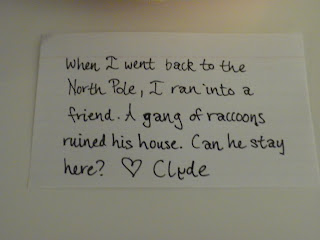 When I went back to the
North Pole, I ran into a
friend. A gang of raccoons
ruined his house. Can he stay
here? ♡ Clyde